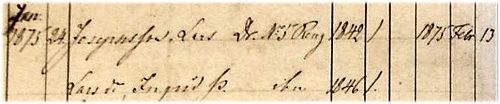 Jan.
1875 24 Josephsson, Lars Dr. No 5 Ring 1842 /. 1875 Febr 13
Larsd., Ingrid ibm 1846 /.